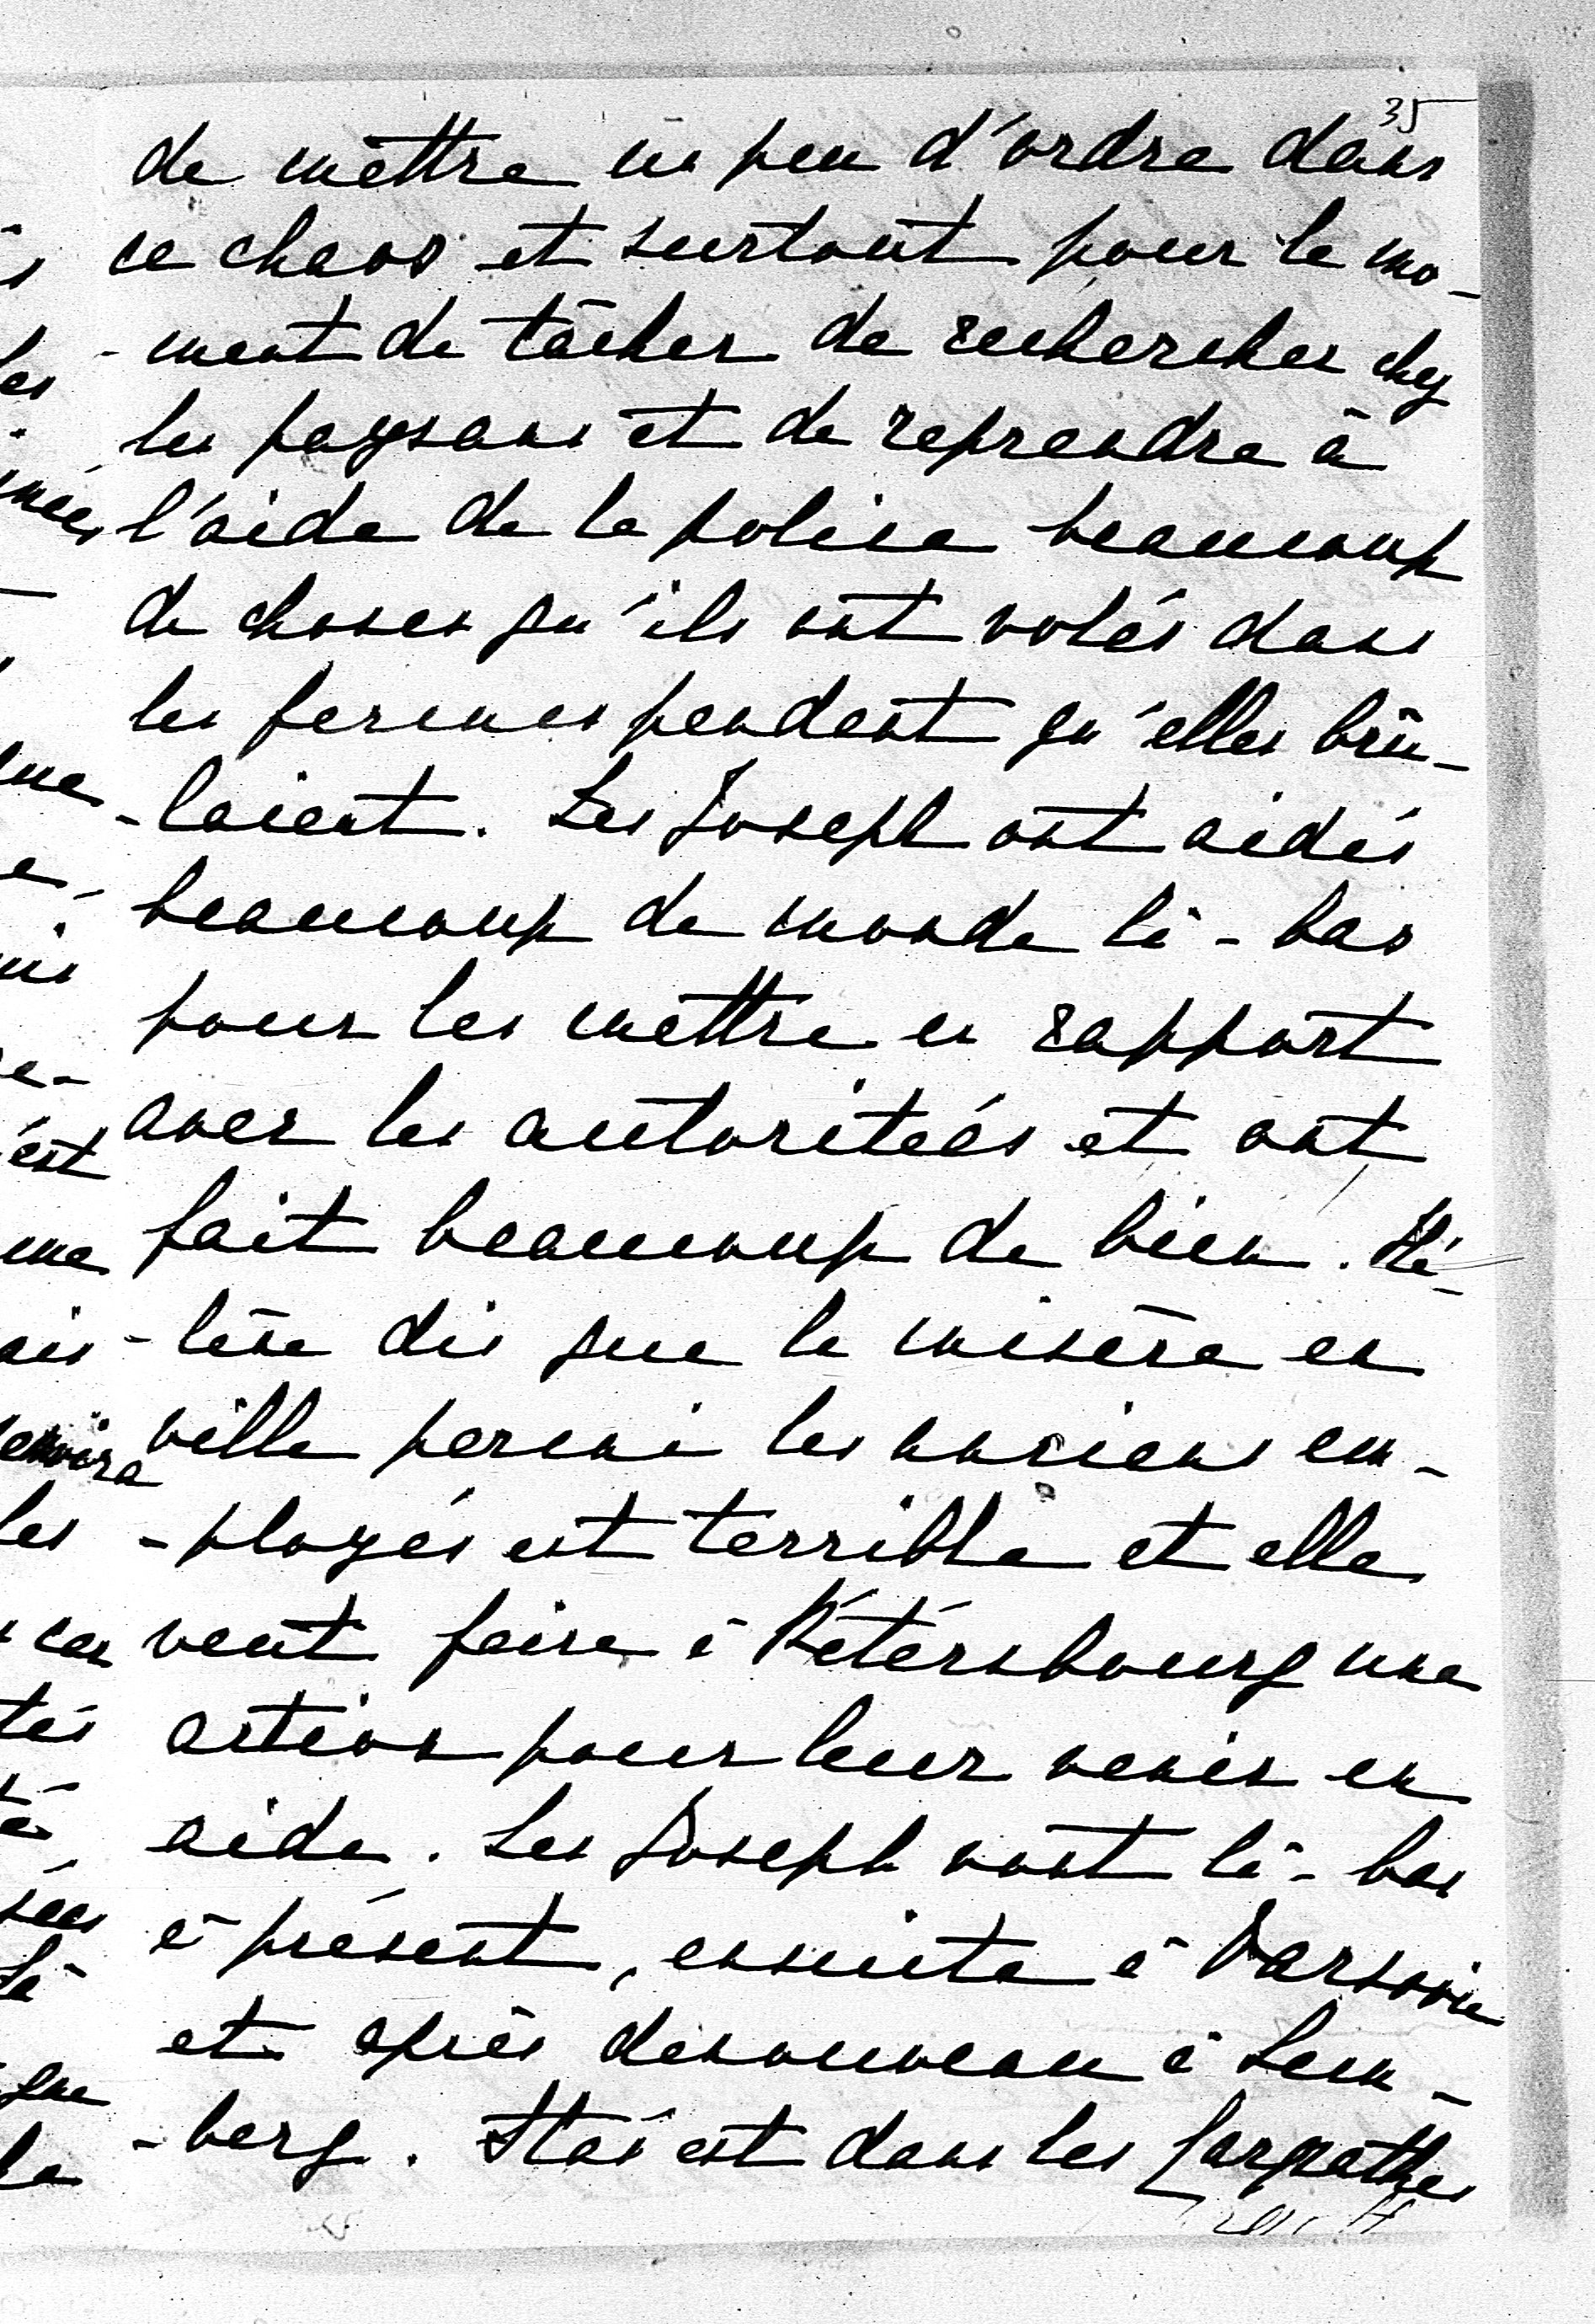 35
de mettre un peu d'ordre dans
ce chaos et surtout pour le mo-
-ment de tâcher de rechercher chez
les paysans et de reprendre à
l'aide de la police beaucoup
de choses qu'ils ont volés dans
les fermes pendant qu'elles brû-
-laient. Les Joseph ont aidés
beaucoup de monde là-bas
pour les mettre en rapport
avec les autoritées et ont
fait beaucoup de bien. Hé-
-lène dis que la misère en
ville parmi les anciens em-
-ployés est terrible et elle
veut faire à Pétérsbourg une
action pour leur venir en
aide. Les Joseph vont là-bas
à présent, ensuite à Varsovie
et après denouveau à Lem-
-berg. Staś est dans les Carpathes